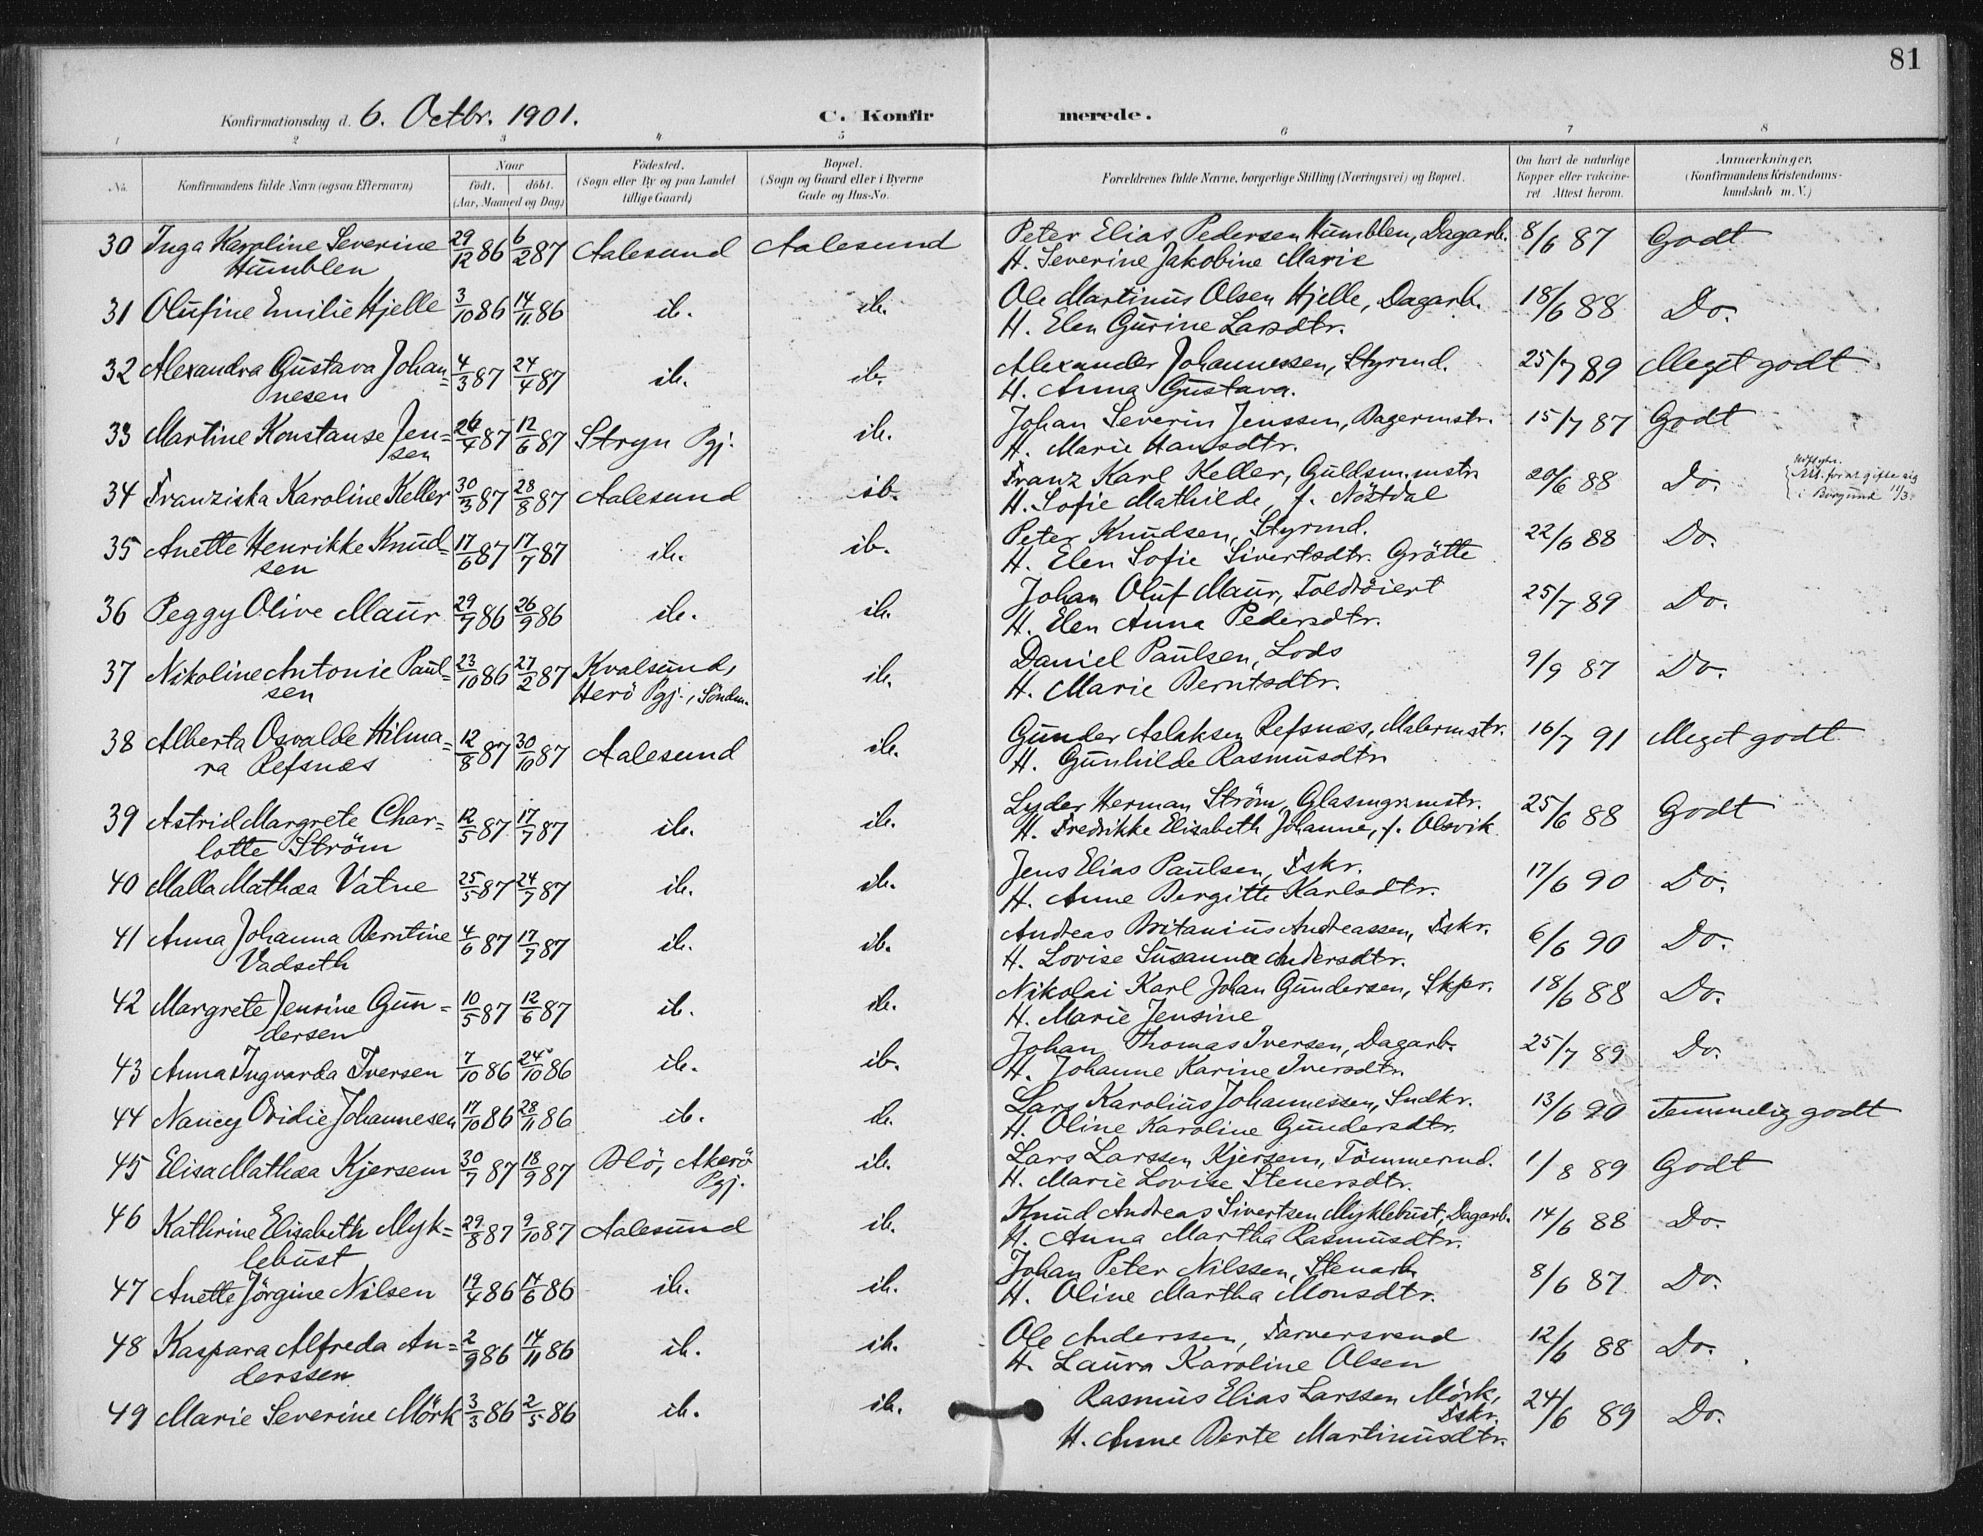 81
Konfirmationsdag d. 6. Octbr. 1901. C. Konfirmerede.
1 2 3 4 5 6 7 8
No. Konfirmandens fulde Navn (ogsaa Efternavn) Naar födt. döbt. (Aar, Maaned og Dag) Födested. (Sogn eller By og paa Landet tillige Gaard) Bopæl. (Sogn og Gaard eller i Byerne Gade og Hus-No. Forældrenes fulde Navne, borgerlige Stilling (Næringsvei) og Bopæl. Om havt de naturlige Kopper eller vaccineret. Attest herom. Anmærkninger, (Konfirmandens Kristendomskundskab m. V.)
30 Inga Karoline Severine 29/12 86 6/2 87 Aalesund Aalesund Peter Elias Pedersen Humblen, Dagarb. 8/6 87 Godt
Humblen H. Severine Jakobine Marie
31 Olufine Emilie Hjelle 3/10 86 14/11 86 ib. ib. Ole Martinus Olsen Hjelle, Dagarb. 18/6 88 Do.
H. Elen Gurine Larsdtr.
32 Alexandra Gustava Johan= 4/3 87 24/4 87 ib. ib. Alexander Johannessen, Styrmd. 25/7 89 Meget godt
nesen H. Anna Gustava.
33 Martine Konstanse Jen= 26/4 87 12/6 87 Stryn Pgj. ib. Johan Severin Jenssen, Bagermstr. 15/7 87 Godt
sen H. Marie Hansdtr.
34 Franziska Karoline Keller 30/3 87 28/8 87 Aalesund ib. Franz Karl Keller, Guldsm.mstr. 20/6 88 Do. Att. for at gifte sig
H. Sofie Mathilde, f. Nöstdal i Borgund 11/3
35 Anette Henrikke Knud= 17/6 87 17/7 87 ib. ib. Peter Knudsen, Styrmd. 22/6 88 Do.
sen H. Elen Sofie Sivertsdtr. Grötte
36 Peggy Olive Maur 29/7 86 26/9 86 ib. ib. Johan Oluf Maur, Toldröiert 25/7 89 Do.
H. Elen Anna Pedersdtr.
37 Nikoline Antonie Paul= 23/10 86 27/2 87 Kvalsund, ib. Daniel Paulsen, Lods 9/9 87 Do.
sen Herö Pgj., Söndm. H. Marie Berntsdtr.
38 Alberta Osvalde Hilma= 12/8 87 30/10 87 Aalesund ib. Gunder Aslaksen Refsnæs, Malermstr. 16/7 91 Meget godt
ra Refsnæs H. Gunhilde Rasmusdtr.
39 Astrid Margrete Char= 12/5 87 17/7 87 ib. ib. Lyder Herman Ström, Glasmgr.mstr. 25/6 88 Godt
lotte Ström H. Fredrikke Elisabeth Johanne, f. Olsvik
40 Malla Mathæa Vatne 25/5 87 24/7 87 ib. ib. Jens Elias Paulsen, Fskr. 17/6 90 Do.
H. Anne Bergitte Karlsdtr.
41 Anna Johanna Berntine 4/6 87 17/7 87 ib. ib. Andreas Britanius Andreassen, Fskr. 6/6 90 Do.
Vadseth H. Lovise Susanna Andersdtr.
42 Margrete Jensine Gun= 10/5 87 12/6 87 ib. ib. Nikolai Karl Johan Gundersen, Skpr. 18/6 88 Do.
dersen H. Marie Jensine
43 Anna Ingvarda Iversen 7/10 86 24/10 86 ib. ib. Johan Thomas Iversen, Dagarb. 25/7 89 Do.
H. Johanne Karine Iversdtr.
44 Nancy Ovidie Johannesen 17/10 86 28/11 86 ib. ib. Lars Karolius Johannessen, Sndkr. 13/6 90 Temmelig godt
H. Oline Karoline Gundersdtr.
45 Elisa Mathæa Kjersem 30/7 87 18/9 87 Blö, Akerö ib. Lars Larssen Kjersem, Tömmermd. 1/8 89 Godt
Pgj. H. Marie Lovise Stenersdtr.
46 Kathrine Elisabeth Myk= 29/8 87 9/10 87 Aalesund ib. Knud Andreas Sivertsen Myklebust, Dagarb. 14/6 88 Do.
lebust H. Anna Martha Rasmusdtr.
47 Anette Jörgine Nilsen 19/4 86 14/6 86 ib. ib. Johan Peter Nilssen, Stenarb. 8/6 87 Do.
H. Oline Martha Monsdtr.
48 Kaspara Alfreda An= 2/9 86 14/11 86 ib. ib. Ole Anderssen, Farversvend 12/6 88 Do.
derssen H. Laura Karoline Olsen
49 Marie Severine Mörk 3/3 86 2/5 86 ib. ib. Rasmus Elias Larssen Mörk, 24/6 89 Do.
Fskr.
H. Anne Berte Martinusdtr.